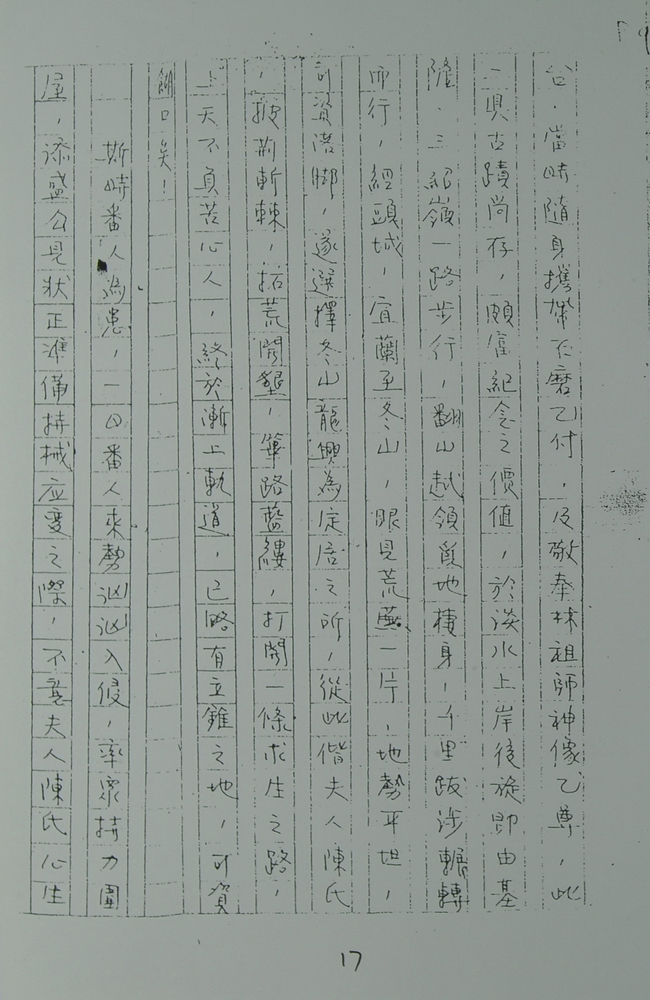 台，當時隨身攜帶石磨乙付，及敬奉林祖師神像乙尊，此
二俱古蹟尚存，頗富紀念之價值，於淡水上岸後旋即由基
隆．三紹嶺一路步行，翻山越領覓地棲身，千里跋涉輾轉
而行，經頭城，宜蘭至冬山，眼見荒蕪一片，地勢平坦，
可資落脚，遂選擇冬山龍興為定居之所，從此偕夫人陳氏
，披荆斬棘，拓荒開墾，篳路藍縷，打開一條求生之路，
上天不負苦心人，終於漸上軌道，已略有立錐之地，可資
餬口矣！
斯時番人為患，一日番人來勢汹汹入侵，率眾持刀圍
屋，添盛公見狀正準備持械应變之際，不意夫人陳氏心生
17